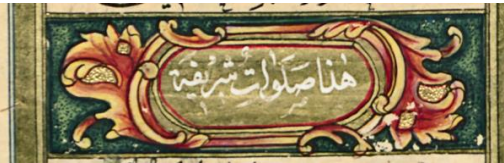 هذا صلوات شريفة